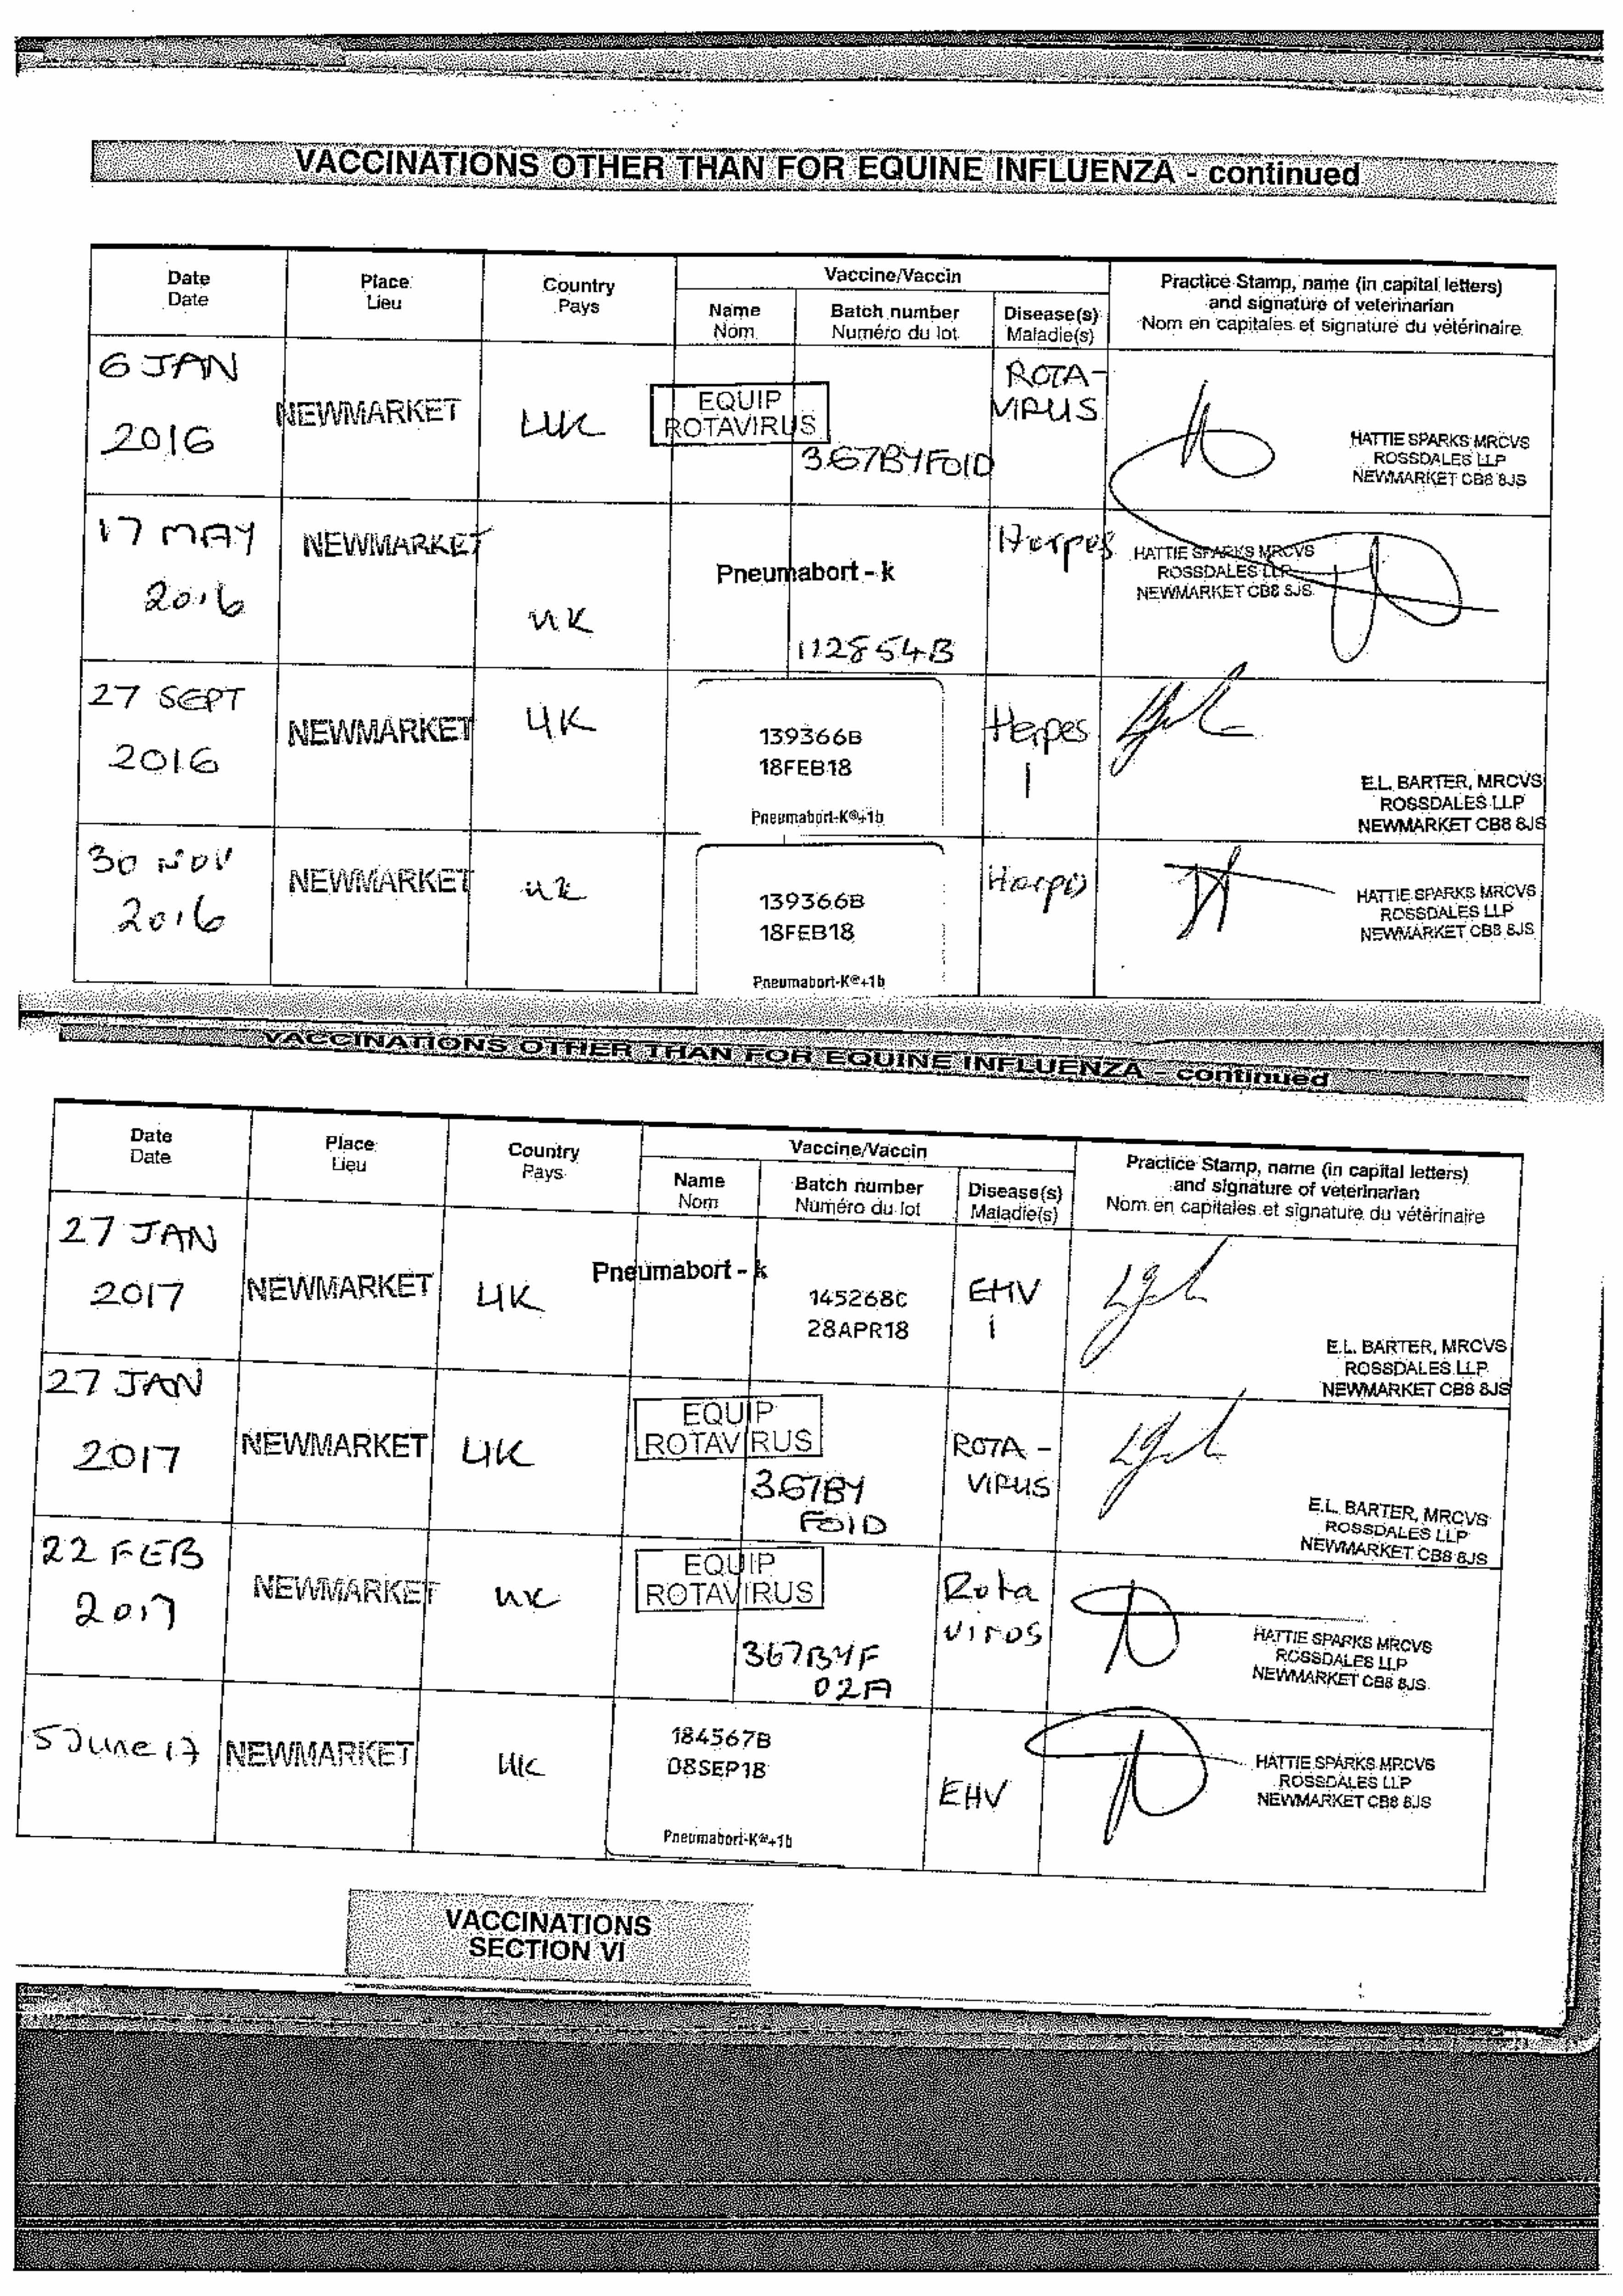 VACCINATIONS OTHER THAN FOR EQUINE INFLUENZA - continued
Date
Date
Place
Lieu
Country
Pays
Vaccine/Vaccin
Name
Nom
Batch number
Numéro du lot
Disease(s)
Maladie(s)
Practice Stamp, name (in capital letters)
and signature of veterinarian
Nom en capitales et signature du vétérinaire
6 JAN
2016
NEWMARKET
UK
EQUIP
ROTAVIRUS
367BYFOID
ROTA-
VIRUS
HATTIE SPARKS MRCVS
ROSSDALES LLP
NEWMARKET CB8 8JS
17 MAY
2016
NEWMARKET
UK
Pneumabort - k
112854B
Herpes
HATTIE SPARKS MRCVS
ROSSDALES LLP
NEWMARKET CB8 8JS
27 SEPT
2016
NEWMARKET
UK
139366B
18FEB18
Pneumabort-K®+1b
Herpes
1
E.L. BARTER, MRCVS
ROSSDALES LLP
NEWMARKET CB8 8JS
30 NOV
2016
NEWMARKET
UK
139366B
18FEB18
Pneumabort-K®+1b
Herpes
HATTIE SPARKS MRCVS
ROSSDALES LLP
NEWMARKET CB8 8JS
VACCINATIONS OTHER THAN FOR EQUINE INFLUENZA - continued
Date
Date
Place
Lieu
Country
Pays
Vaccine/Vaccin
Name
Nom
Batch number
Numéro du lot
Disease(s)
Maladie(s)
Practice Stamp, name (in capital letters)
and signature of veterinarian
Nom en capitales et signature du vétérinaire
27 JAN
2017
NEWMARKET
UK
Pneumabort - k
145268C
28APR18
EHV
1
E.L. BARTER, MRCVS
ROSSDALES LLP
NEWMARKET CB8 8JS
27 JAN
2017
NEWMARKET
UK
EQUIP
ROTAVIRUS
367BY
FOID
ROTA -
VIRUS
E.L. BARTER, MRCVS
ROSSDALES LLP
NEWMARKET CB8 8JS
22 FEB
2017
NEWMARKET
UK
EQUIP
ROTAVIRUS
367BYF
02A
Rota
virus
HATTIE SPARKS MRCVS
ROSSDALES LLP
NEWMARKET CB8 8JS
5 June 17
NEWMARKET
UK
184567B
08SEP18
Pneumabort-K®+1b
EHV
HATTIE SPARKS MRCVS
ROSSDALES LLP
NEWMARKET CB8 8JS
VACCINATIONS
SECTION VI